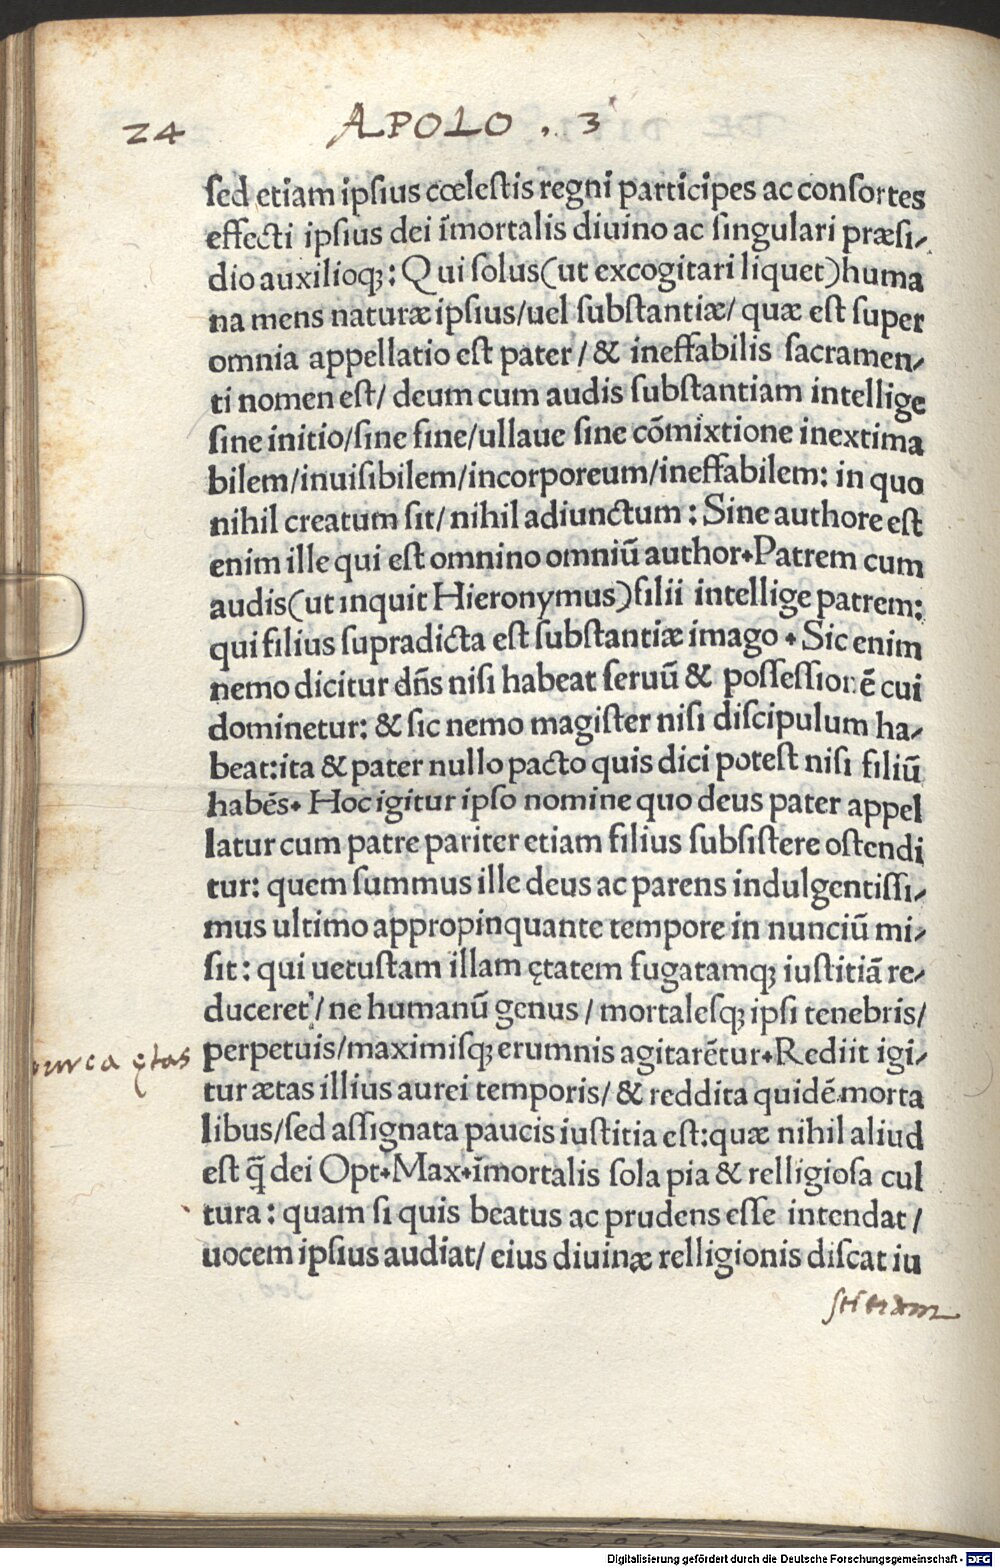 24 APOLO . 3
sed etiam ipsius cœlestis regni participes ac consortes
effecti ipsius dei ĩmortalis diuino ac singulari præsi-
dio auxilioq;: Qui solus(ut excogitari liquet)huma
na mens naturæ ipsius/uel substantiæ/ quæ est super
omnia appellatio est pater/ & ineffabilis sacramen-
ti nomen est/ deum cum audis substantiam intellige
sine initio/sine fine/ullaue sine cõmixtione inextima
bilem/inuisibilem/incorporeum/ineffabilem: in quo
nihil creatum sit/ nihil adiunctum: Sine authore est
enim ille qui est omnino omniũ author. Patrem cum
audis(ut inquit Hieronymus)filii intellige patrem:
qui filius supradicta est substantiæ imago. Sic enim
nemo dicitur dñs nisi habeat seruũ & possessionẽ cui
dominetur: & sic nemo magister nisi discipulum ha-
beat:ita & pater nullo pacto quis dici potest nisi filiũ
habẽs. Hoc igitur ipso nomine quo deus pater appel
latur cum patre pariter etiam filius subsistere ostendi
tur: quem summus ille deus ac parens indulgentissi-
mus ultimo appropinquante tempore in nunciũ mi-
sit: qui uetustam illam ętatem fugatamq; iustitiã re-
duceret/ ne humanũ genus/ mortalesq; ipsi tenebris/
perpetuis/maximisq; erumnis agitarẽtur. Rediit igi-
tur ætas illius aurei temporis/ & reddita quidẽ morta
libus/sed assignata paucis iustitia est:quæ nihil aliud
est q̃ dei Opt. Max. ĩmortalis sola pia & relligiosa cul
tura: quam si quis beatus ac prudens esse intendat/
uocem ipsius audiat/ eius diuinæ relligionis discat iu
stitiam
ętas
Digitalisierung gefördert durch die Deutsche Forschungsgemeinschaft - DFG